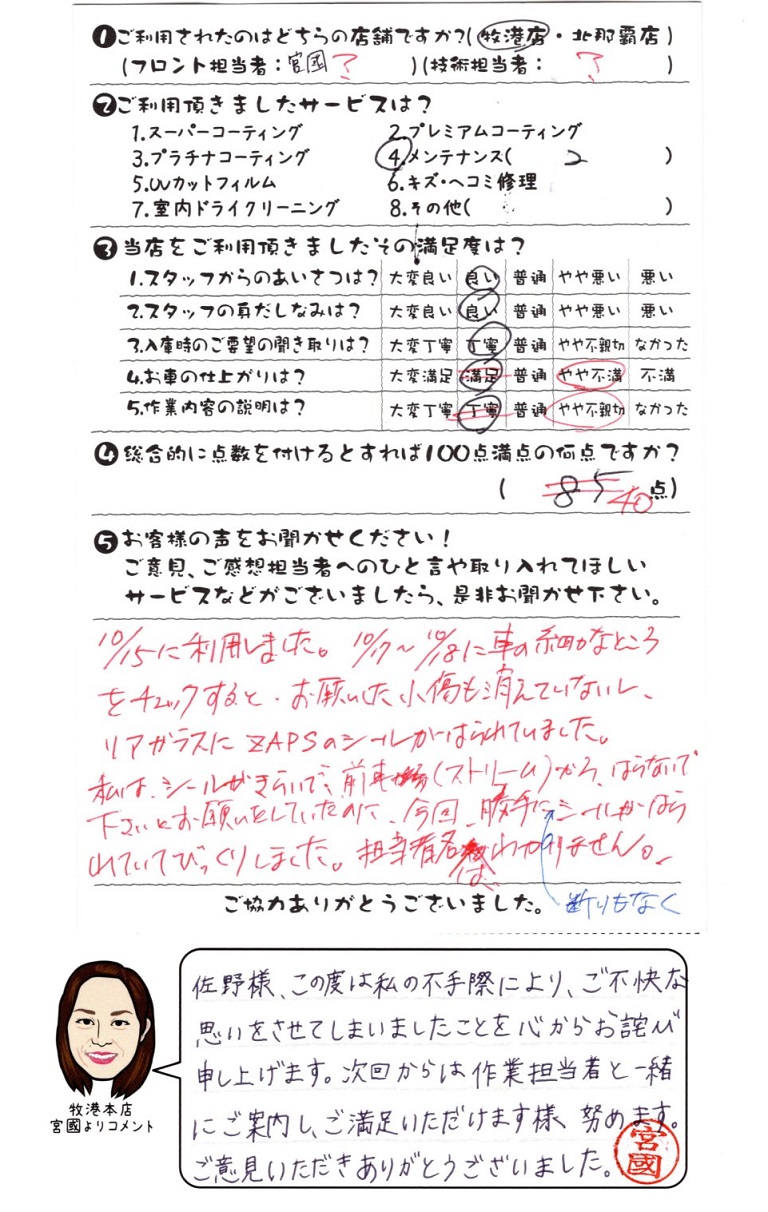 ❶ご利用されたのはどちらの店舗ですか?(牧港店・北那覇店)
(フロント担当者:宮國?)(技術担当者:?)
❷ご利用頂きましたサービスは?
1.スーパーコーティング 2.プレミアムコーティング
3.プラチナコーティング 4.メンテナンス(2)
5.UVカットフィルム 6.キズ・ヘコミ修理
7.室内ドライクリーニング 8.その他( )
❸当店をご利用頂きましたその満足度は?
1.スタッフからのあいさつは? 大変良い 良い 普通 やや悪い 悪い
2.スタッフの身だしなみは? 大変良い 良い 普通 やや悪い 悪い
3.入庫時のご要望の聞き取りは? 大変丁寧 丁寧 普通 やや不親切 なかった
4.お車の仕上がりは? 大変満足 満足 普通 やや不満 不満
5.作業内容の説明は? 大変丁寧 丁寧 普通 やや不親切 なかった
❹総合的に点数を付けるとすれば100点満点の何点ですか?
(85 40点)
❺お客様の声をお聞かせください!
ご意見、ご感想担当者へのひと言や取り入れてほしい
サービスなどがございましたら、是非お聞かせ下さい。
10/15に利用しました。10/17~10/18に車の細かなところ
をチェックすると、お願いした小傷も消えていないし、
リアガラスにZAPSのシールがはられていました。
私は、シールがきらいで、前車(ストリーム)から、はらないで
下さいとお願いをしていたのに、今回、勝手にシールがはら
れていてびっくりしました。担当者名はわかりません。
ご協力ありがとうございました。 断りもなく
佐野様、この度は私の不手際により、ご不快な
思いをさせてしまいましたことを心からお詫び
申し上げます。次回からは作業担当者と一緒
にご案内し、ご満足いただけます様、努めます。
ご意見いただきありがとうございました。
宮國
牧港本店
宮國よりコメント